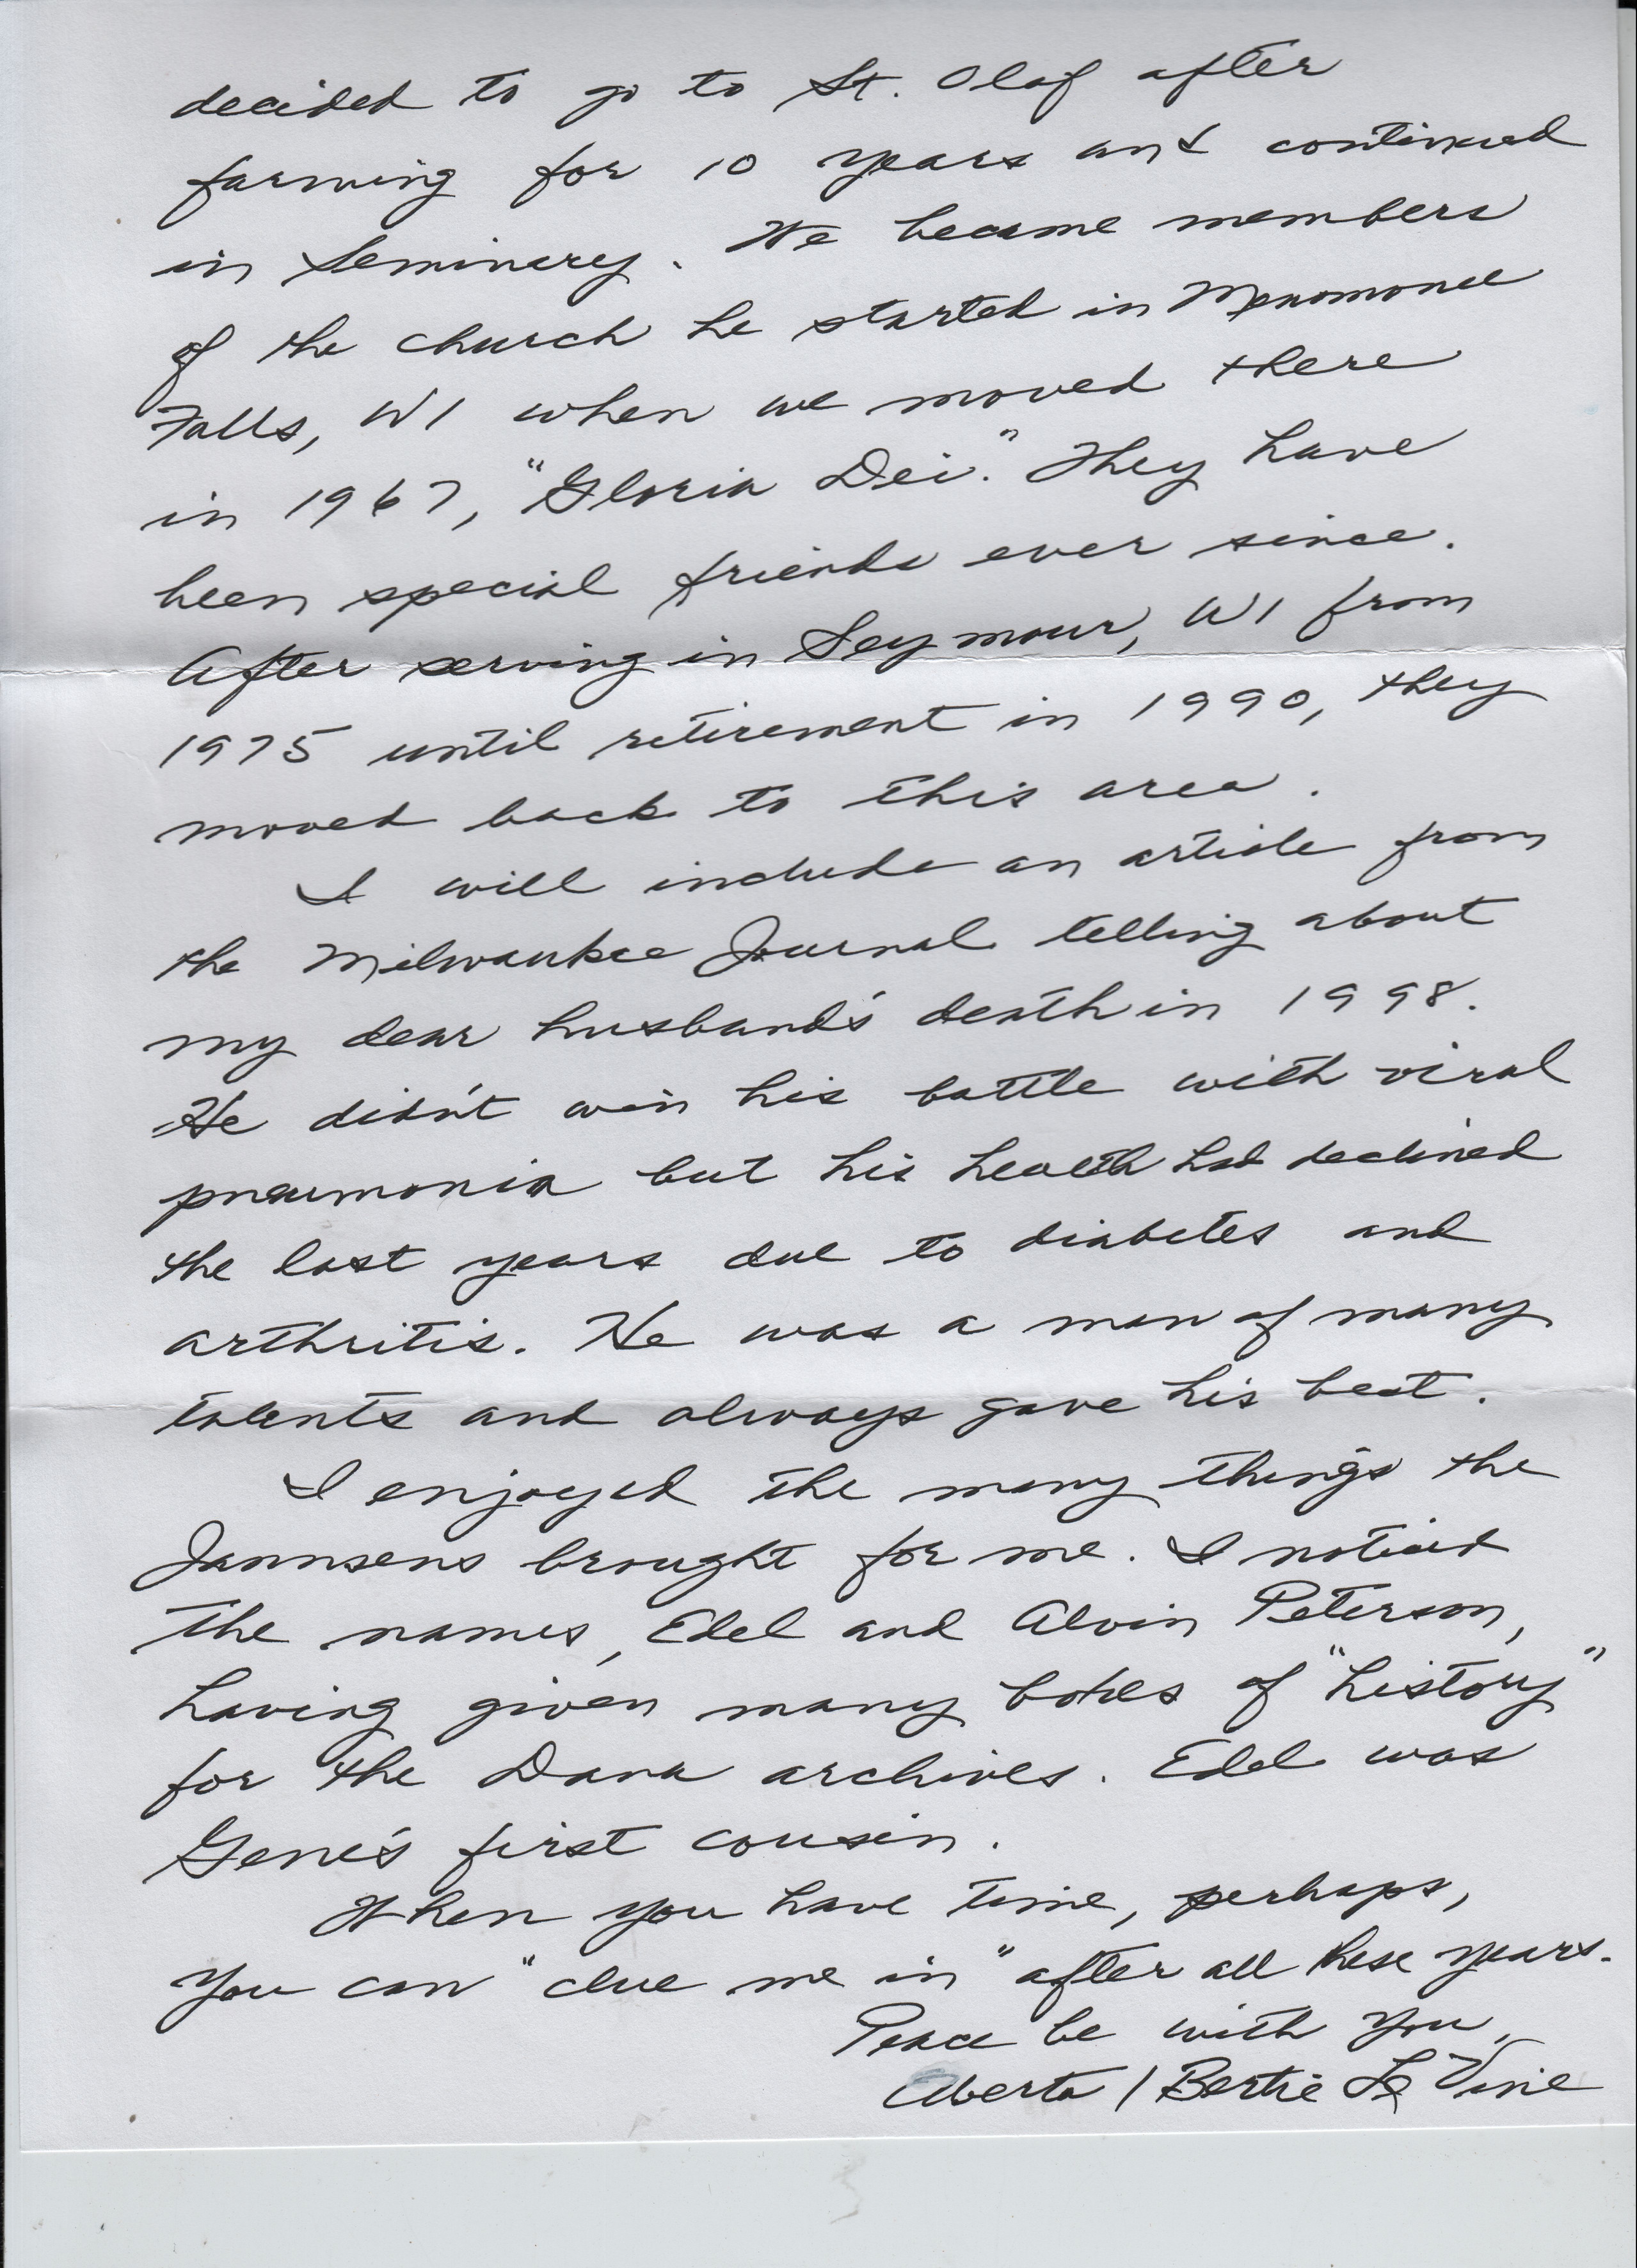 decided to go to St. Olaf after
farming for 10 years and continued
in Seminary. We became members
of the church he started in Menomonee
Falls, WI when we moved there
in 1967, "Gloria Dei." They have
been special friends ever since.
After serving in Seymour, WI from
1975 until retirement in 1990, they
moved back to this area.
I will include an article from
the Milwaukee Journal telling about
my dear husband's death in 1998.
He didn't win his battle with viral
pneumonia but his health had declined
the last years due to diabetes and
arthritis. He was a man of many
talents and always gave his best.
I enjoyed the many things the
Jannsens brought for me. I noticed
the names, Edel and Alvin Peterson,
having given many boxes of "history"
for the Dana archives. Edel was
Gene's first cousin.
When you have time, perhaps,
you can "clue me in" after all these years.
Peace be with you,
Alberta / Bertie Le Vine